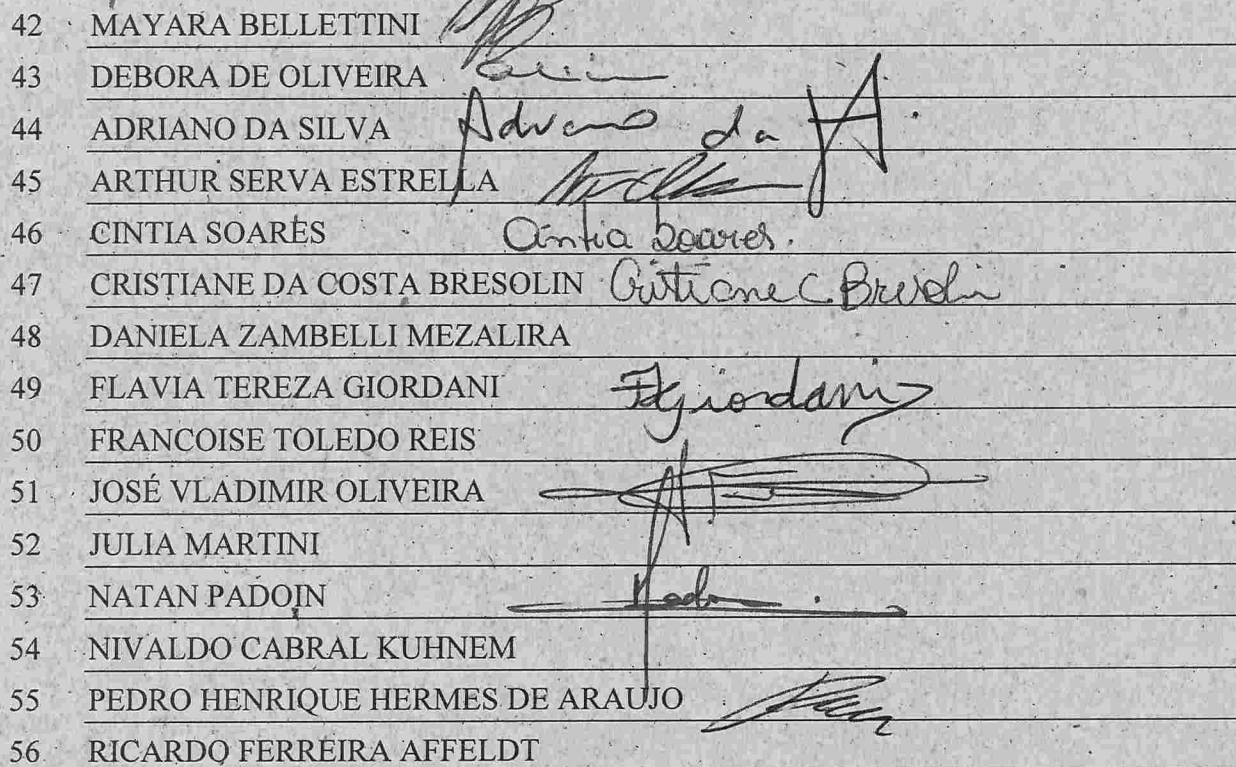 42 MAYARA BELLETTINI
43 DEBORA DE OLIVEIRA
44 ADRIANO DA SILVA Adriano da
45 ARTHUR SERVA ESTRELLA
46 CINTIA SOARES Cintia Soares.
47 CRISTIANE DA COSTA BRESOLIN Cristiane C Bresolin
48 DANIELA ZAMBELLI MEZALIRA
49 FLAVIA TEREZA GIORDANI FTgiordani
50 FRANCOISE TOLEDO REIS
51 JOSÉ VLADIMIR OLIVEIRA
52 JULIA MARTINI
53 NATAN PADOIN
54 NIVALDO CABRAL KUHNEM
55 PEDRO HENRIQUE HERMES DE ARAUJO
56 RICARDO FERREIRA AFFELDT